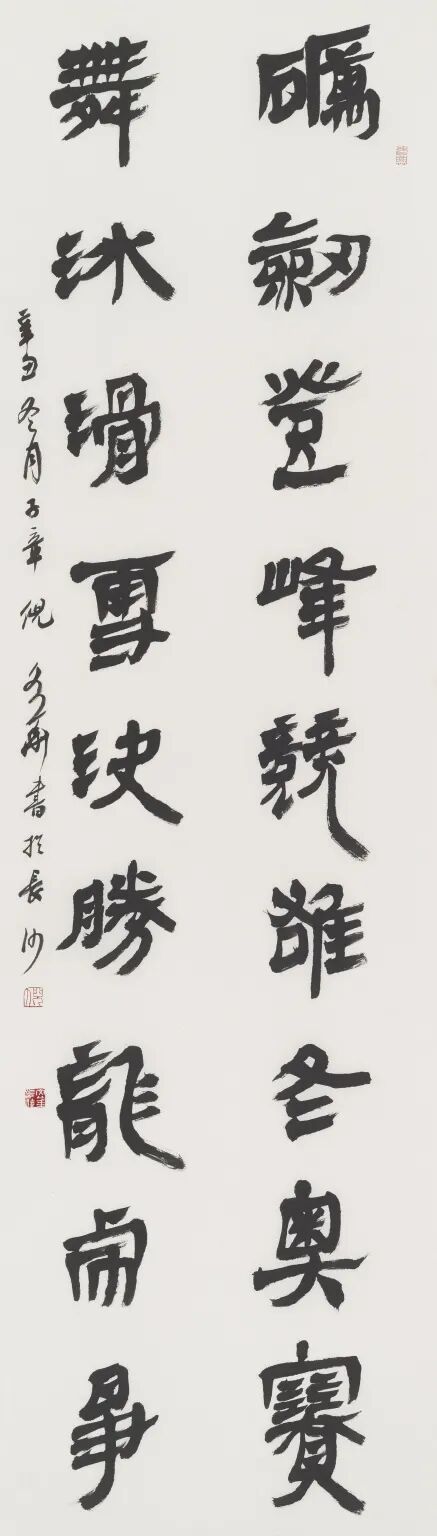 礪劒登峰競雄冬奧賽
舞冰滑雪決勝龍虎爭
辛丑冬月子章倪華書於長沙